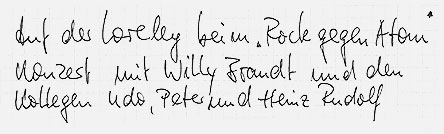 Auf der Loreley beim „Rock gegen Atom“
Konzert mit Willy Brandt und den
Kollegen Udo, Peter und Heinz Rudolf